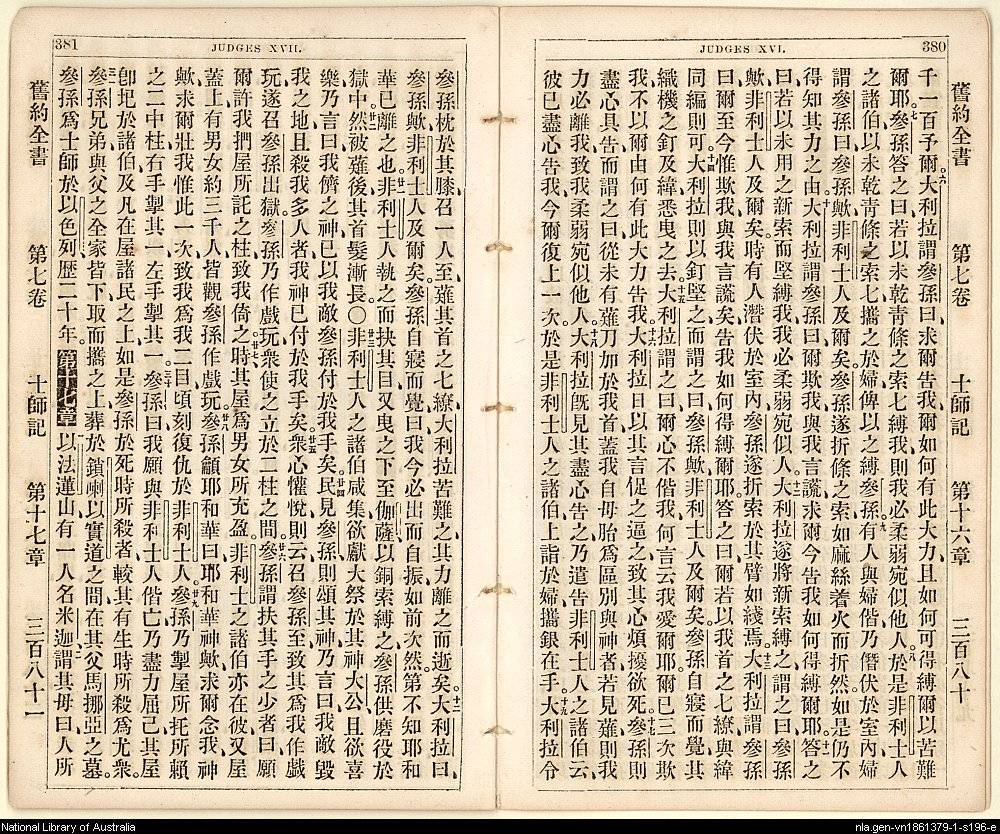 舊約全書 第七卷 士師記 第十六章 三百八十
JUDGES XVI. 380
千一百予爾大利拉謂參孫曰求爾告我爾如何有此大力且如何可得縛爾以苦難
爾耶參孫答之曰若以未乾青條之索七縛我則我必柔弱宛似他人於是非利士人
之諸伯以未乾青條之索七攜之於婦俾以之縛參孫有人與婦偕乃僭伏於室內婦
謂參孫曰參孫歟非利士人及爾矣參孫遂折條之索如麻絲着火而折然如是仍不
得知其力之由大利拉謂參孫曰爾欺我與我言謊求爾今告我如何得縛爾耶答之
曰若以未用之新索而堅縛我我必柔弱宛似人大利拉遂將新索縛之謂之曰參孫
歟非利士人及爾矣時有人潛伏於室內參孫遂折索於其臂如綫焉大利拉謂參孫
曰爾至今惟欺我與我言謊矣告我如何得縛爾耶答之曰爾若以我首之七繚與緯
同編則可大利拉則以釘堅之而謂之曰參孫歟非利士人及爾矣參孫自寢而覺其
織機之釘及緯悉曳之去大利拉謂之曰爾心不偕我我何言云我愛爾耶爾已三次欺
我不以爾由何有此大力告我大利拉日以其言促之逼之致其心煩擾欲死參孫則
盡心具告而謂之曰從未有薙刀加於我首蓋我自母胎爲區別與神者若見薙則我
力必離我致我柔弱宛似他人大利拉旣見其盡心告之乃遣告非利士人之諸伯云
彼已盡心告我今爾復上一次於是非利士人之諸伯上詣於婦攜銀在手大利拉令
381 JUDGES XVII.
參孫枕於其膝召一人至薙其首之七繚大利拉苦難之其力離之而逝矣大利拉曰
參孫歟非利士人及爾矣參孫自寢而覺曰我今必出而自振如前次然第不知耶和
華已離之也非利士人執之而抉其目又曳之下至伽薩以銅索縛之參孫供磨役於
獄中然被薙後其首髮漸長○非利士人之諸伯咸集欲獻大祭於其神大公且欲喜
樂乃言曰我儕之神已以我敵參孫付於我手矣民見參孫則頌其神乃言曰我敵毀
我之地且殺我多人者我神已付於我手矣衆心懽悅則云召參孫至致其爲我作戲
玩遂召參孫出獄參孫乃作戲玩衆使之立於二柱之間參孫謂扶其手之少者曰願
爾許我捫屋所託之柱致我倚之時其屋爲男女所充盈非利士之諸伯亦在彼又屋
蓋上有男女約三千人皆觀參孫作戲玩參孫籲耶和華曰耶和華神歟求爾念我神
歟求爾壯我惟此一次致我爲我二目頃刻復仇於非利士人參孫乃掣屋所托所賴
之二中柱右手掣其一左手掣其一參孫曰我願與非利士人偕亡乃盡力屈己其屋
卽圯於諸伯及凡在屋諸民之上如是參孫於死時所殺者較其有生時所殺爲尤衆
參孫兄弟與父之全家皆下取而攜之上葬於鎖喇以實道之間在其父馬挪亞之墓
參孫爲士師於以色列歷二十年第十七章以法蓮山有一人名米迦謂其母曰人所
舊約全書 第七卷 士師記 第十七章 三百八十一
National Library of Australia
nla.gen-vn1861379-1-s196-e